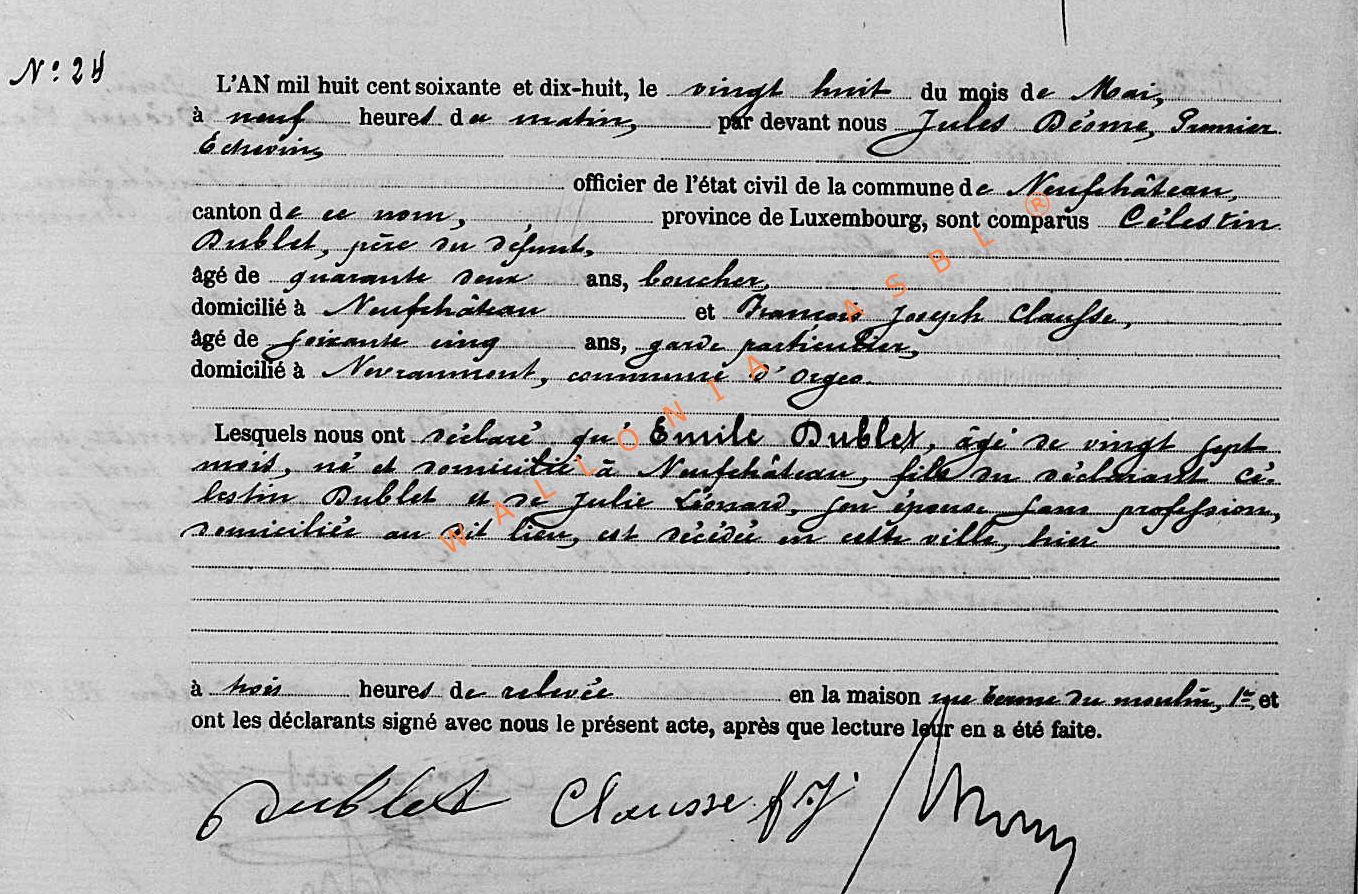 N° 24
L'AN mil huit cent soixante et dix-huit, le vingt huit du mois de Mai,
à neuf heures du matin, par devant nous Jules Déome, Premier
Echevin,
officier de l'état civil de la commune de Neufchâteau,
canton de ce nom, province de Luxembourg, sont comparus Célestin
Dublet, père du défunt,
âgé de quarante deux ans, boucher,
domicilié à Neufchâteau et François Joseph Clausse,
âgé de soixante cinq ans, garde particulier,
domicilié à Nevraumont, commune d'Orgeo.
Lesquels nous ont déclaré qu'Emile Dublet, âgé de vingt sept
mois, né et domicilié à Neufchâteau, fils du déclarant Cé-
lestin Dublet et de Julie Léonard, son épouse sans profession,
domiciliée au dit lieu, est décédé en cette ville, hier
à trois heures de relevée en la maison rue du moulin, 1er, et
ont les déclarants signé avec nous le présent acte, après que lecture leur en a été faite.
Dublet Clausse f J
WALLONIA ASBL ®